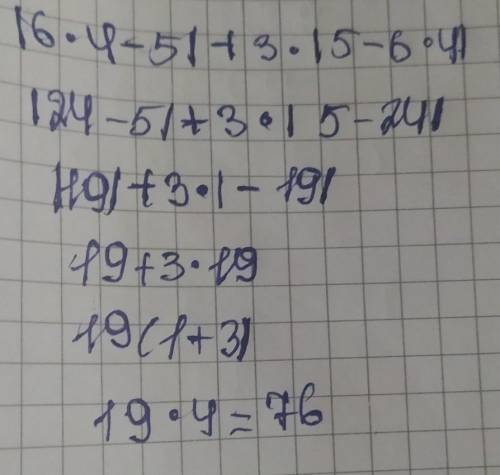 |6·4-5|+3·|5-6·4|
|24-5|+3·|5-24|
|19|+3·|-19|
19+3·19
19(1+3)
19·4=76